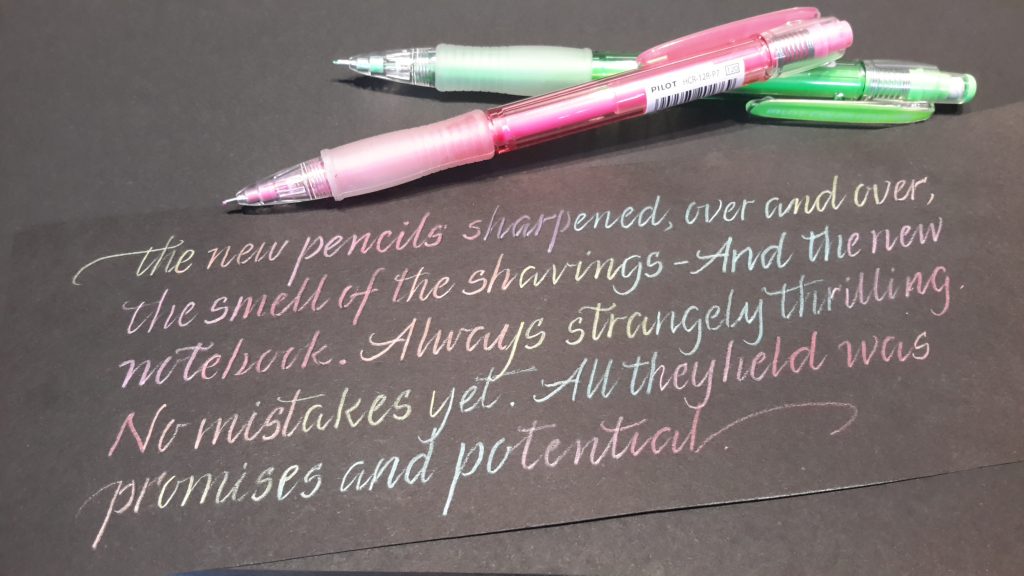 PILOT HCR-12R-P7
the new pencils sharpened, over and over,
the smell of the shavings - And the new
notebook. Always strangely thrilling.
No mistakes yet. All they held was
promises and potential.